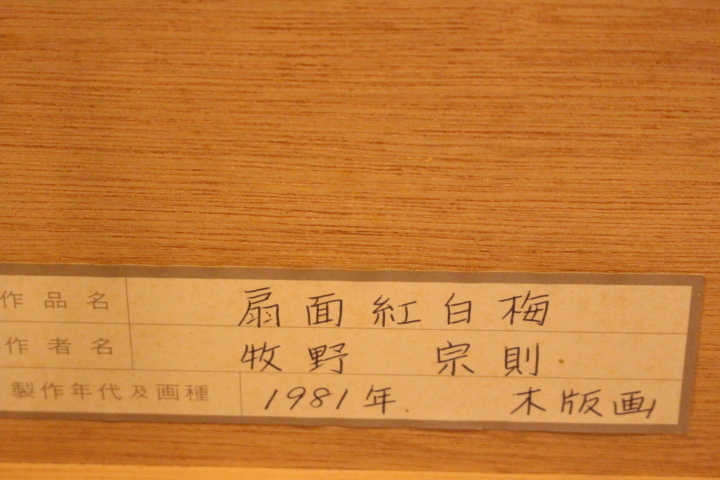 作品名 扇面紅白梅
作者名 牧野 宗則
製作年代及画種 1981年. 木版画